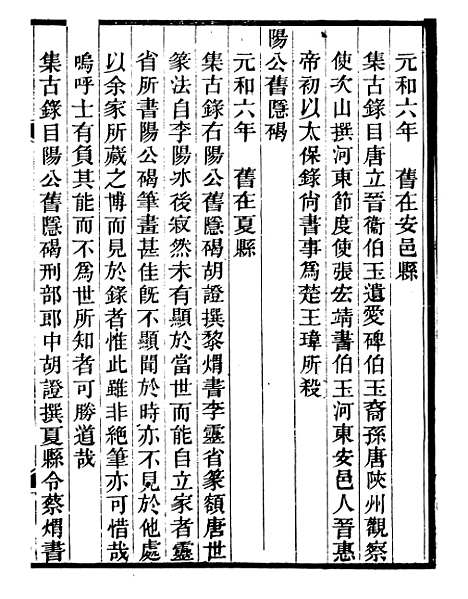 元和六年　舊在安邑縣
集古錄目唐立晉衞伯玉遺愛碑伯玉裔孫唐陝州觀察
使次山撰河東節度使張宏靖書伯玉河東安邑人晉惠
帝初以太保錄尙書事爲楚王瑋所殺
陽公舊隱碣
元和六年　舊在夏縣
集古錄右陽公舊隱碣胡證撰黎煟書李靈省篆額唐世
篆法自李陽冰後寂然未有顯於當世而能自立家者靈
省所書陽公碣筆畫甚佳旣不顯聞於時亦不見於他處
以余家所藏之博而見於錄者惟此雖非絕筆亦可惜哉
嗚呼士有負其能而不爲世所知者可勝道哉
集古錄目陽公舊隱碣刑部郎中胡證撰夏縣令蔡煟書